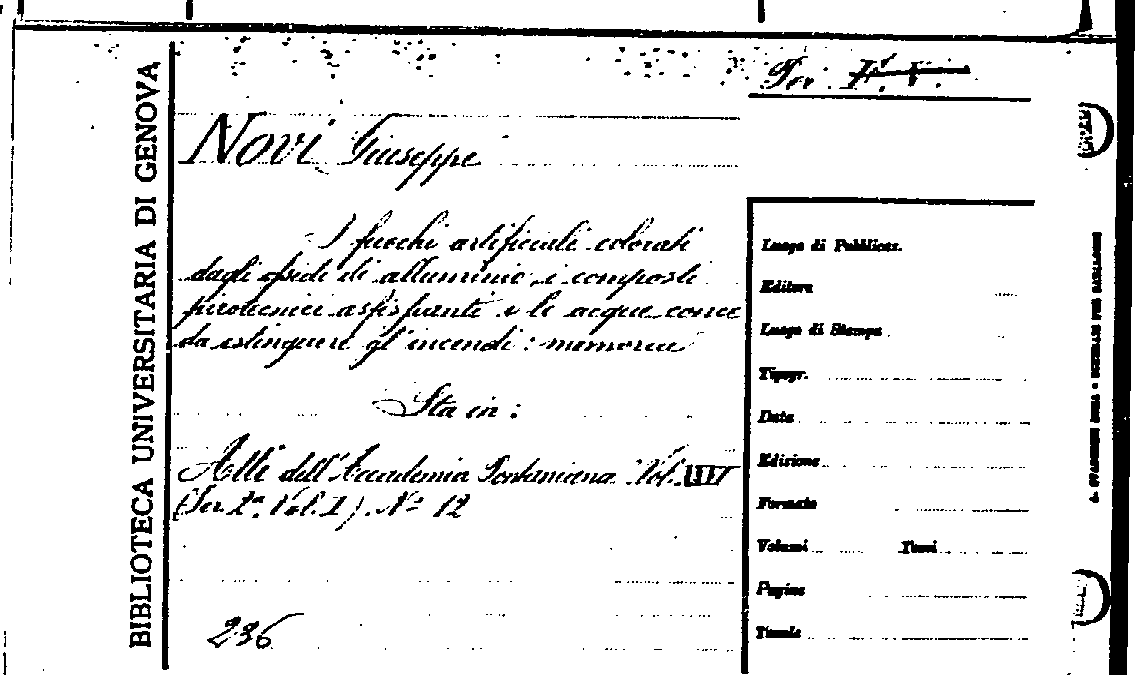 BIBLIOTECA UNIVERSITARIA DI GENOVA
Per. F. V.
Novi Giuseppe
I fuochi artificiali colorati
dagli ossidi di alluminio, i composti
pirotecnici asfissianti e le acque conce
da estinguere gl'incendi: memoria
Sta in:
Atti dell'Accademia Pontaniana. Vol.
(Ser. 2ª. Vol. I). Nº 12
236
Luogo di Pubblicaz.
Editore
Luogo di Stampa
Tipogr.
Data
Edizione
Formato
Volumi Tomi
Pagine
Tavole